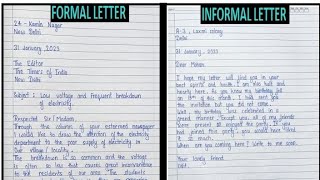 FORMAL LETTER
24 - Kamla Nagar
New Delhi
31 January, 2023
The Editor
The Times of India
New Delhi
Subject : Low voltage and frequent breakdown
of electricity.
Respected Sir / Madam,
Through the column of your esteemed newspaper
I would like to draw the attention of the electricity
department to the poor supply of electricity in
our village / locality.
The breakdown is so common and the voltage
is often so low that causes great inconvenience
to the residents of our area. The students
INFORMAL LETTER
A-3, Laxmi colony
Delhi
31 January, 2023
Dear Mohan
I hope my letter will find you in your
best spirits and health. I am also well and
hearty here. As you know my birthday fell
on of this month. I had sent you
the invitation but you did not come.
Well, my birthday was celebrated in a
grand manner. Except you, all of my friends
were present to enjoyed the party. If you
had joined this party, you would have liked
so much.
When are you coming here? Write to me soon.
Your loving friend